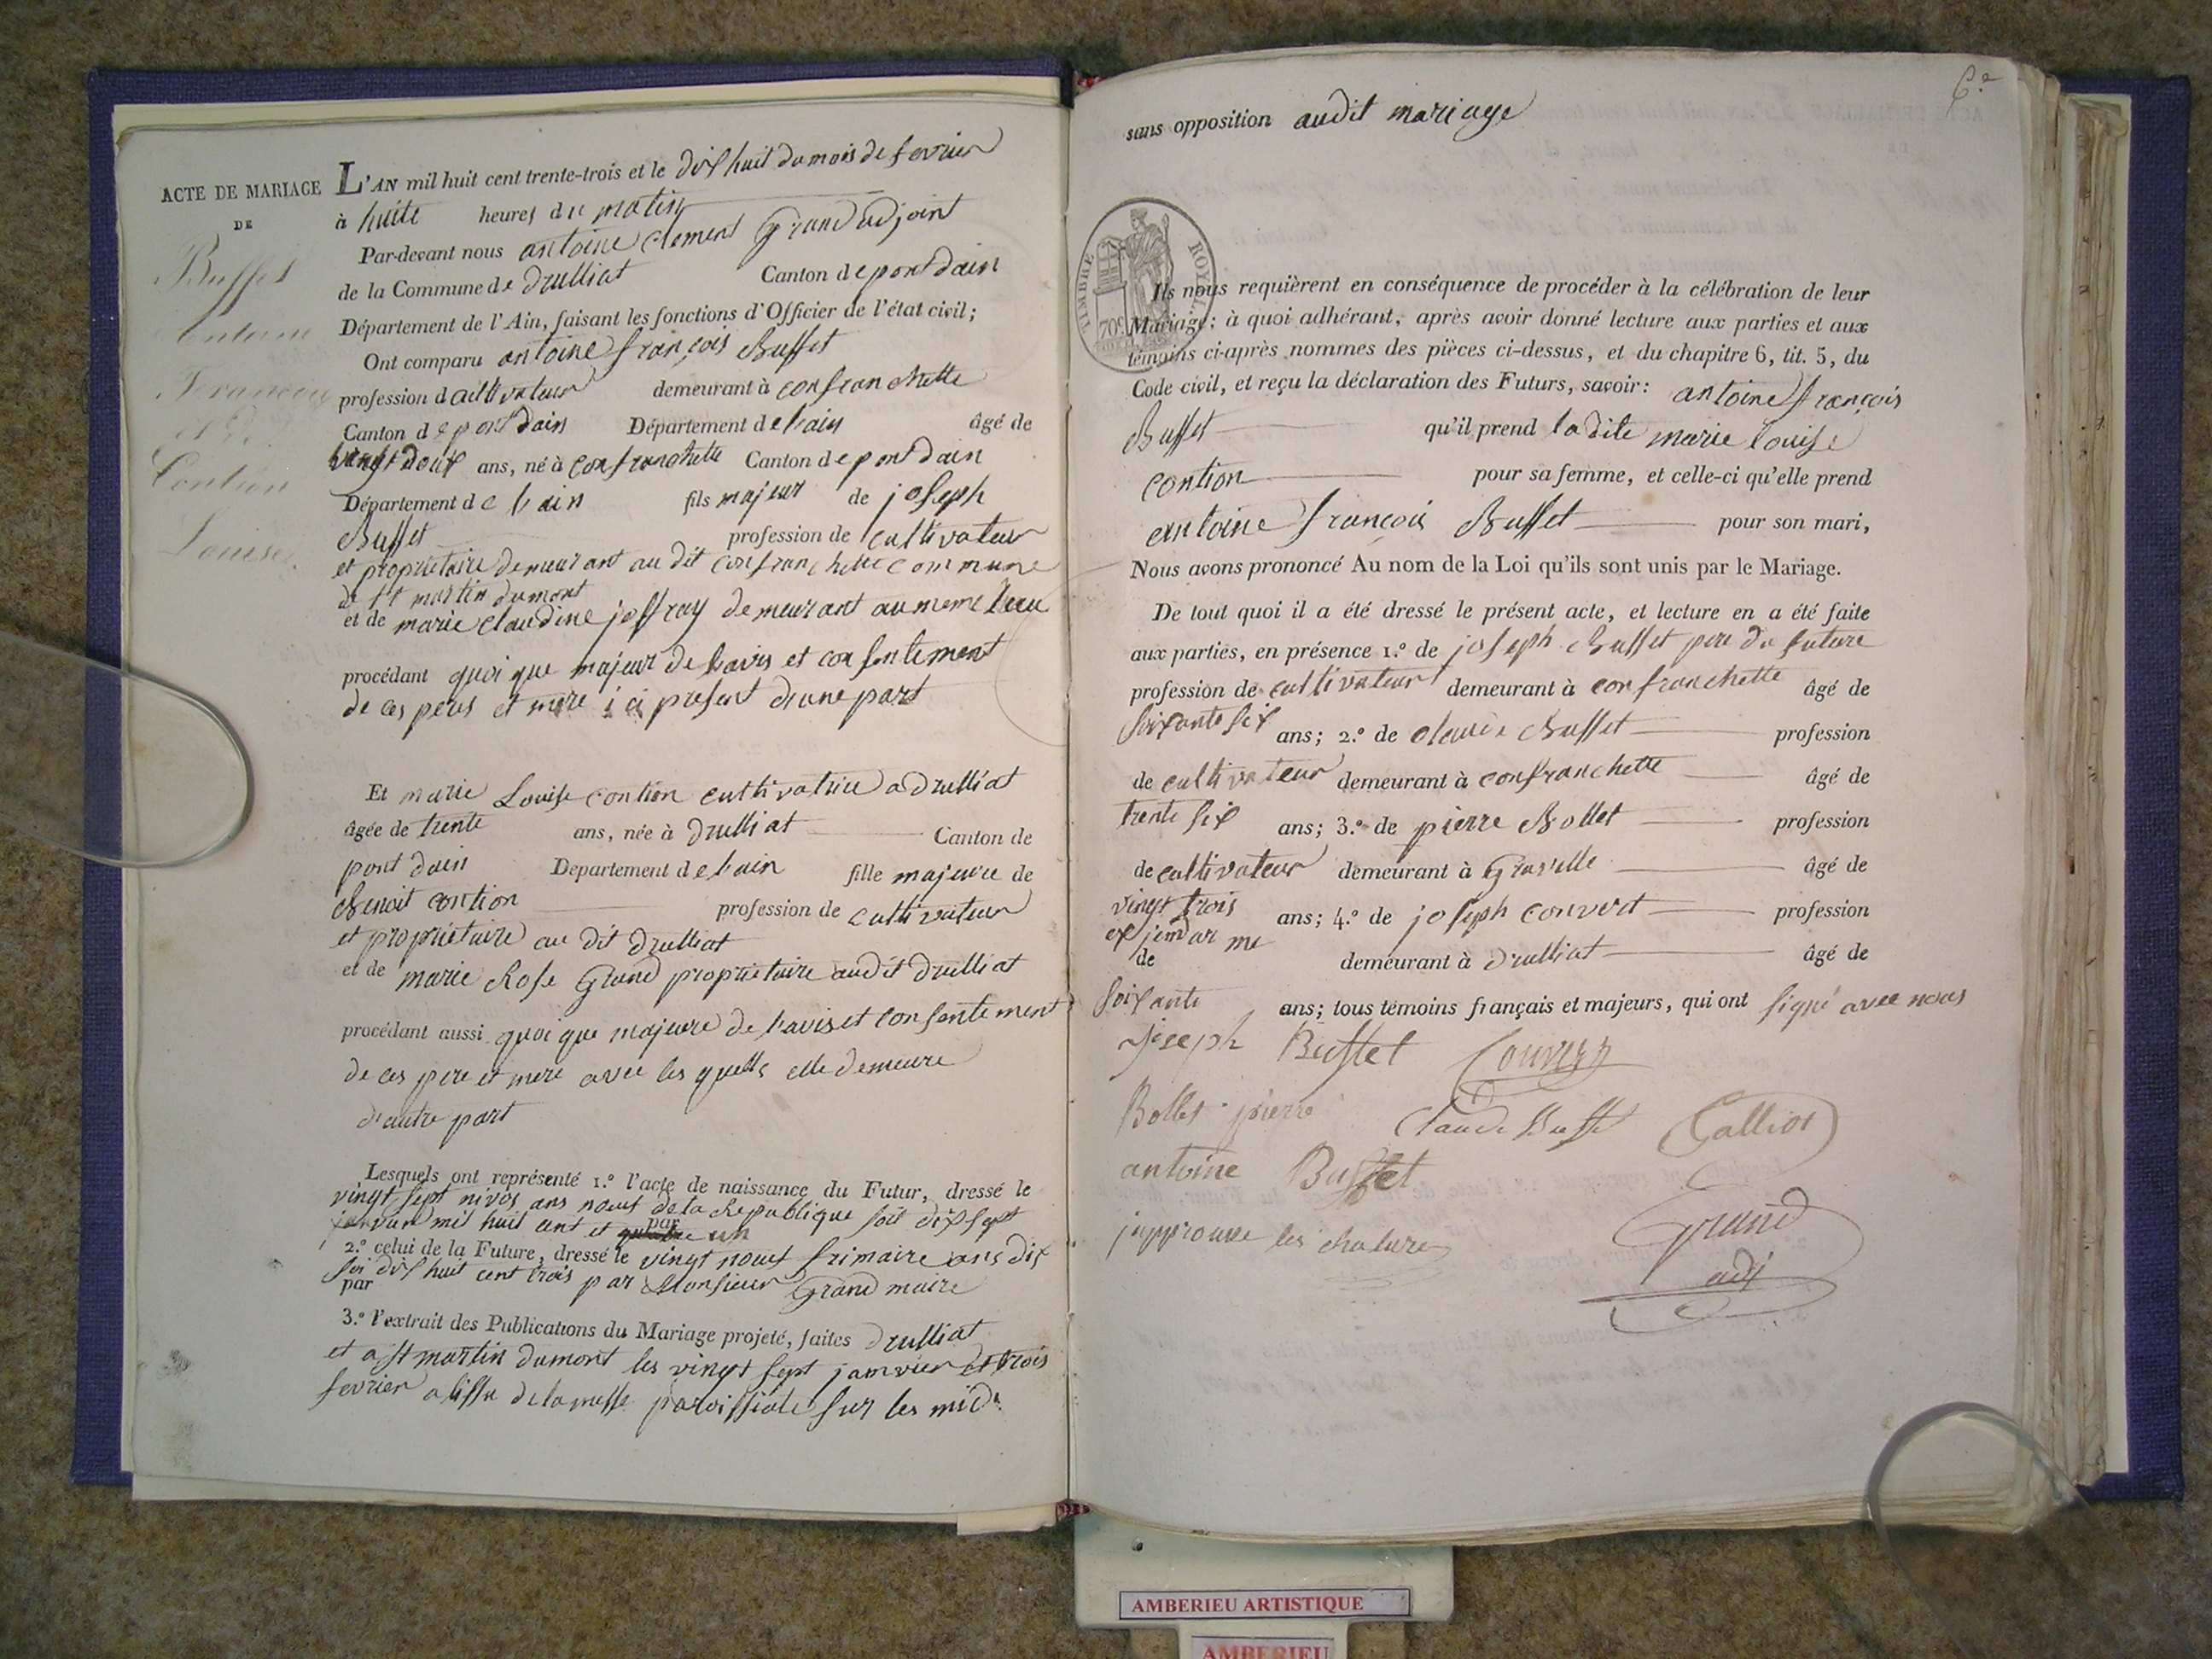 ACTE DE MARIAGE
DE
Buffet
Antoine
François
et De
Contion
Louise
L'AN mil huit cent trente-trois et le dix huit du mois de fevrier
à huite heures du matin
Par-devant nous antoine clement Grand adjoint
de la Commune de Drulliat Canton de pont dain
Département de l'Ain, faisant les fonctions d'Officier de l'état civil;
Ont comparu antoine françois Buffet
profession d cultivateur demeurant à confranchette
Canton de pont dain Département de l'ain âgé de
vingt doux ans, né à confranchette Canton de pont dain
Département de l'ain fils majeur de joseph
Buffet profession de cultivateur
et propriétaire demeurant au dit confranchette commune
de st martin dumont
et de marie claudine joffray demeurant au meme lieu
procédant quoi que majeur de l'avis et consentement
de ces peres et mere ici present d'une part
Et marie Louise contion cultivatrice a Drulliat
âgée de trente ans, née à Drulliat Canton de
pont dain Département de l'ain fille majeure de
Benoit contion profession de cultivateur
et propriétaire au dit Drulliat
et de marie Rose Grand propriétaire audit Drulliat
procédant aussi quoi que majeure de l'avis et consentement
de ces pere et mere avec les quells elle demeure
d'autre part
Lesquels ont représenté 1.º l'acte de naissance du Futur, dressé le
vingt sept nivos ans nouf de la Republique soit dix sept
janvier mil huit cent et un par
2.º celui de la Future, dressé le vingt nouf frimaire ans dix
soi dix huit cent trois par Monsieur Grand maire
par
3.º l'extrait des Publications du Mariage projeté, faites Drulliat
et a st martin dumont les vingt sept janvier et trois
fevrier a lissu de la messe paroissiale sur les midi
6.e
sans opposition audit mariage
TIMBRE ROYAL
70c
Ils nous requièrent en conséquence de procéder à la célébration de leur
Mariage; à quoi adhérant, après avoir donné lecture aux parties et aux
témoins ci-après nommes des pièces ci-dessus, et du chapitre 6, tit. 5, du
Code civil, et reçu la déclaration des Futurs, savoir: antoine françois
Buffet qu'il prend la dite marie louise
contion pour sa femme, et celle-ci qu'elle prend
antoine françois Buffet pour son mari,
Nous avons prononcé Au nom de la Loi qu'ils sont unis par le Mariage.
De tout quoi il a été dressé le présent acte, et lecture en a été faite
aux parties, en présence 1.º de joseph Buffet pere du future
profession de cultivateur demeurant à confranchette âgé de
soixante six ans; 2.º de claude Buffet profession
de cultivateur demeurant à confranchette âgé de
trente six ans; 3.º de pierre Bollet profession
de cultivateur demeurant à Gravelle âgé de
vingt trois ans; 4.º de joseph convert profession
ex jendarme
de demeurant à Drulliat âgé de
soixante ans; tous témoins français et majeurs, qui ont signé avec nous
joseph Buffet Convert
Bollet pierre Claude Buffet Galliot
antoine Buffet
japprouve les rhatures
Grand
adj
AMBERIEU ARTISTIQUE
AMBERIEU